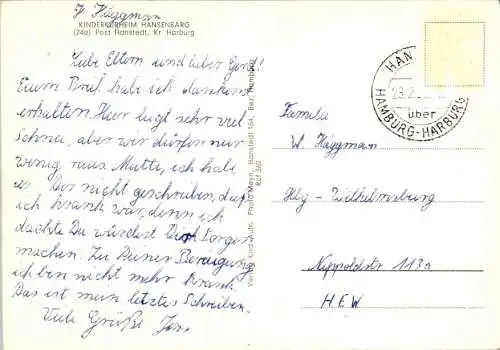 J. Häggman
KINDERKURHEIM HANSENBARG
(24a) Post Hanstedt, Kr. Harburg
Liebe Eltern und lieber Gerd!
Euren Brief habe ich dankend
erhalten. Hier liegt sehr viel
Schnee, aber wir dürfen nur
wenig raus. Mutti, ich habe
es Dir nicht geschrieben, daß
ich krank war, denn ich
dachte Du würdest Dich Sorgen
machen. Zu Deiner Beruigung
ich bin nicht mehr krank.
Das ist mein letztes Schreiben.
Viele Grüße Jens
Photo Mein, Hanstedt 164, Bez. Hamburg
Ruf 360
HAN
23.2.
über
HAMBURG-HARBURG
Familie
W. Häggman
Hbg-Wilhelmsburg
Nippoldstr. 113a
H.E.W.